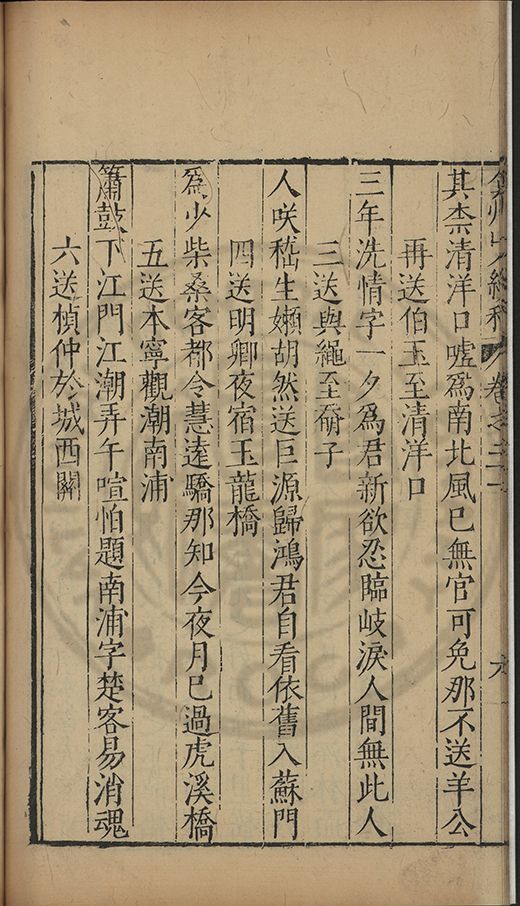 弇州山人續稿 卷之二十 六
其柰清洋口噓爲南北風巳無官可免那不送羊公
再送伯玉至清洋口
三年洗情字一夕爲君新欲忍臨岐淚人間無此人
三送與繩至
人咲嵇生嬾胡然送巨源歸鴻君自看依舊入蘇門
四送明卿夜宿玉龍橋
爲少柴桑客都令慧遠驕那知今夜月巳過虎溪橋
五送本寧觀潮南浦
簫鼓下江門江潮弄午喧怕題南浦字楚客易消魂
六送楨仲於城西關